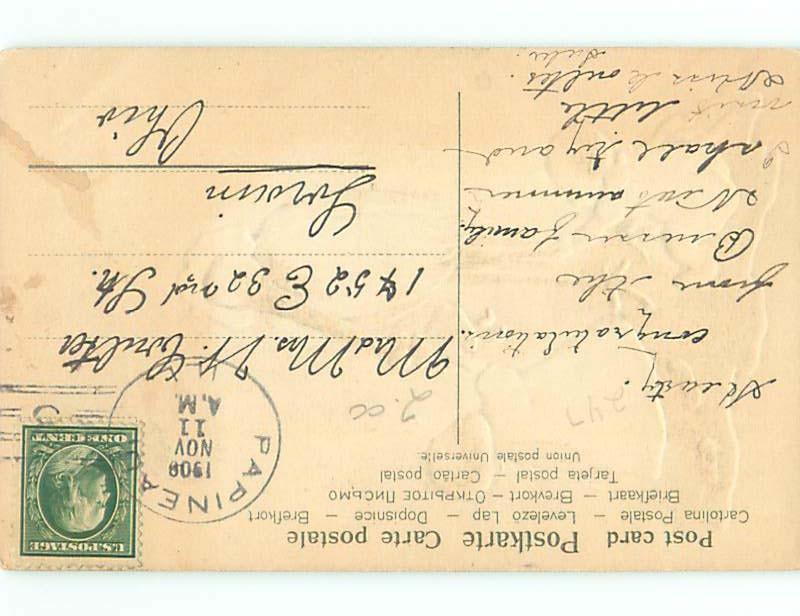 Post card Postkarte Carte postale
Cartolina Postale – Levelező Lap – Dopisnice – Brefkort
Briefkaart – Brevkort – Открытое Письмо
Tarjeta postal – Cartão postal
Union postale Universelle.
U.S. POSTAGE
ONE CENT
PAPINEA
NOV
11
A.M.
1909
247
2.00
Hearty
congratulations.
from the
family.
Next summer
I shall try and
visit little
Sister.
Mr and Mrs. W.
1452 E 32 nd St.
Lorain
Ohio